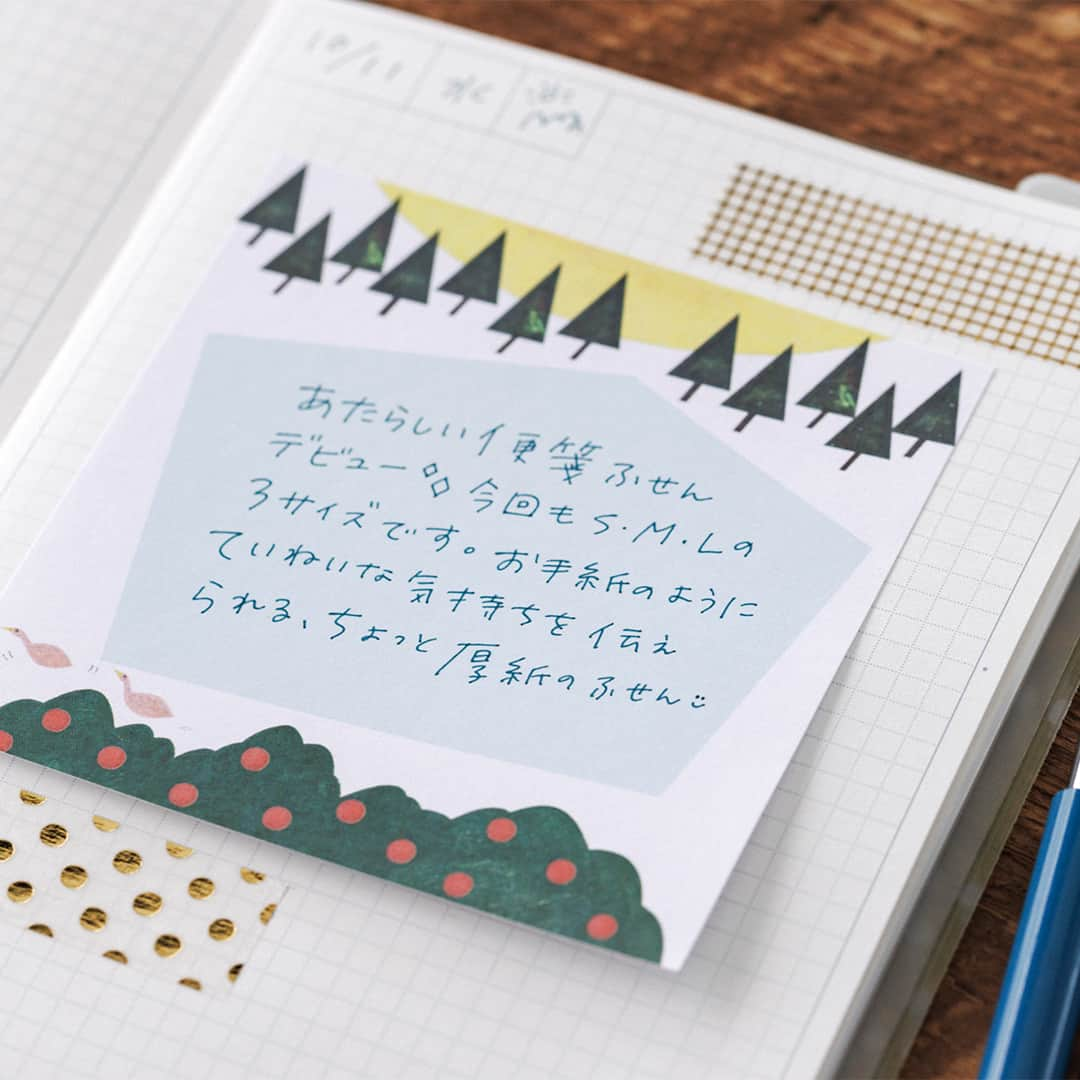 10/11 水
あたらしい便箋ふせん
デビュー 今回もS・M・Lの
3サイズです。お手紙のように
ていねいな気持ちを伝え
られる、ちょっと厚紙のふせん